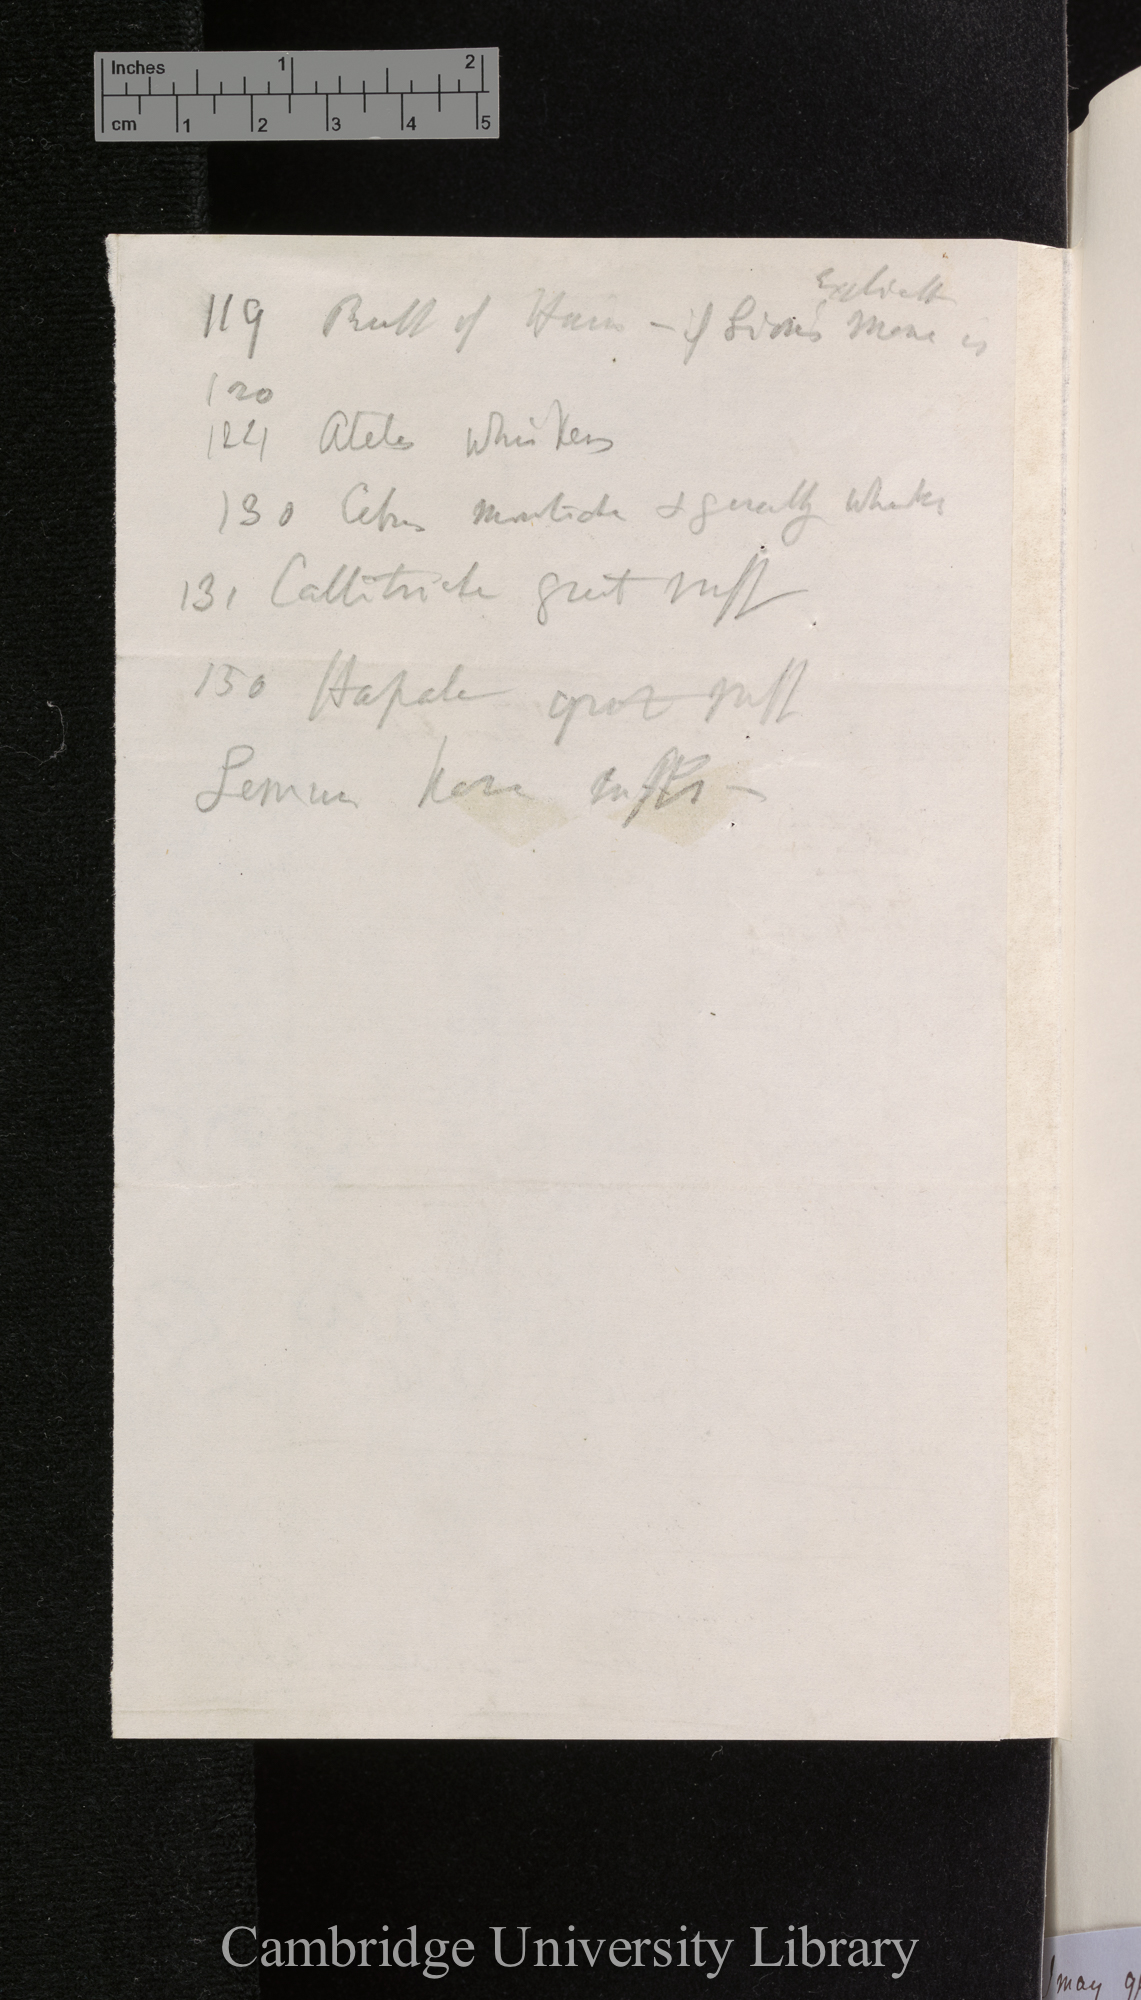 Inches 1 2
cm 1 2 3 4 5
explicable
119 Ruff of Hair – if Lion's mane is
120
124 Ateles whiskers
130 Cebus & generally whiskers
131 Callitriche great ruff
150 Hapale great ruff
Lemur have ruffs –
Cambridge University Library
may